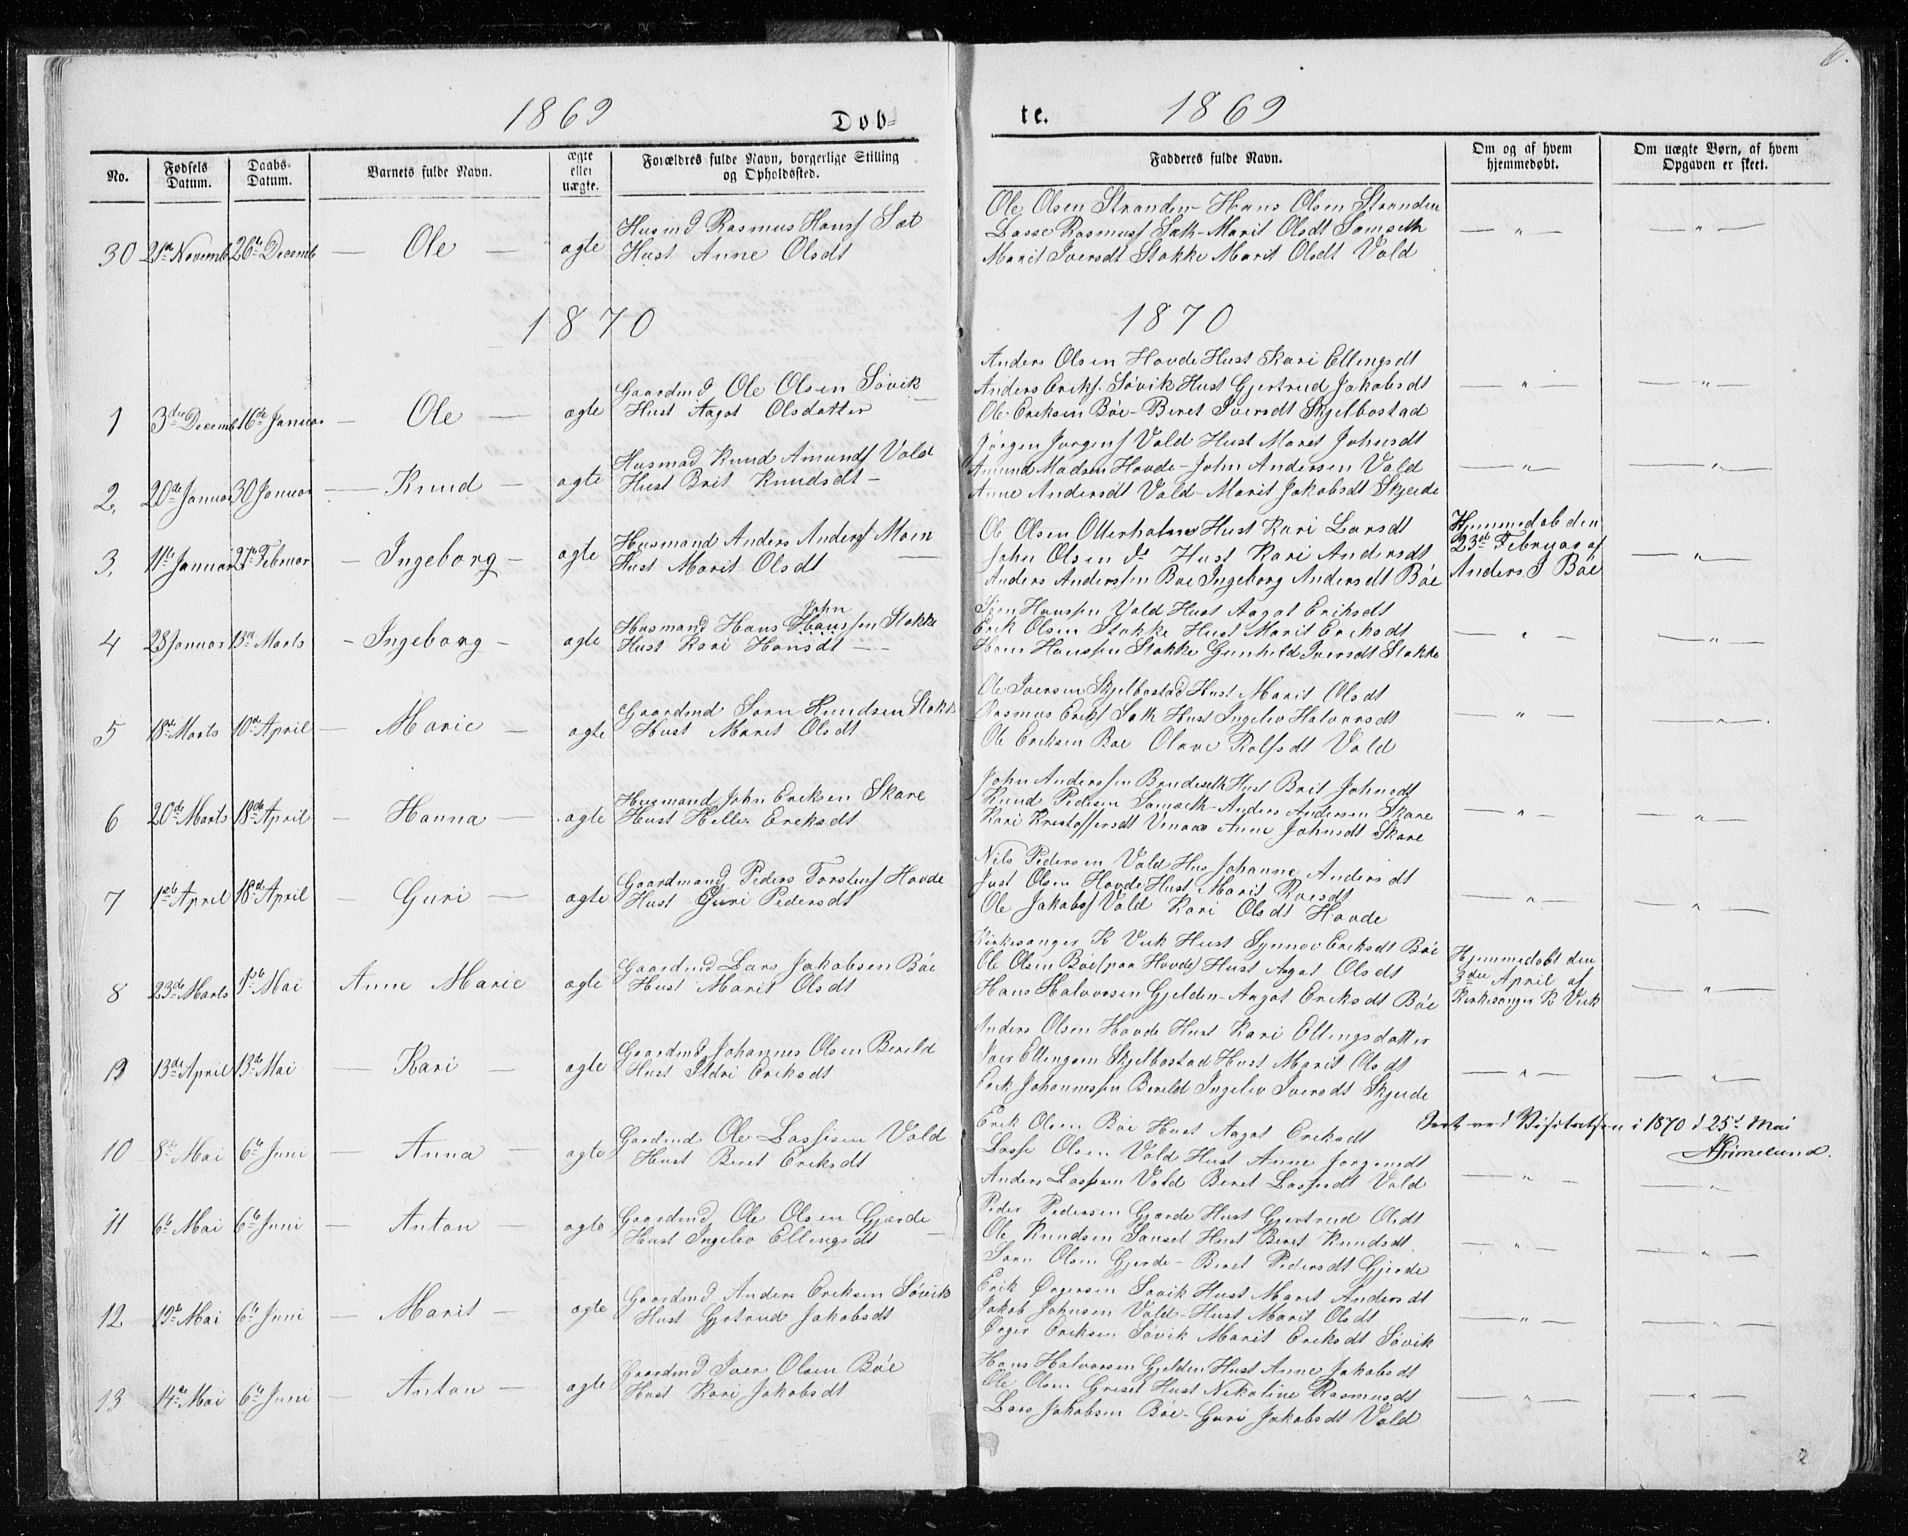 1869 Døb= te. 1869
No. Fødsels Datum. Daabs- Datum. Barnets fulde Navn. ægte eller uægte. Forældres fulde Navn, borgerlige Stilling og Opholdssted. Fadderes fulde Navn. Om og af hvem hjemmedøbt. Om uægte Børn, af hvem Opgaven er skeet.
Husmd Rasmus Hansf Sæt Ole Olsen Stranden - Hans Olsen Stranden
30 21de Novemb 26de Decemb — Ole — ægte Hust Anne Olsdt Lasse Rasmusf Sæth - Marit Olsdt Samseth — " — — " —
Marit Iversdt Stokke Marit Olsdt Vold
1870 1870
Anders Olsen Hovde Hust Kari Ellingsdt
Gaardmd Ole Olsen Søvik Anders Eriksf. Søvik Hust Gjertrud Jakobsdt — " — — " —
1 3die Decemb 16de Januar — Ole — ægte Hust Aagot Olsdatter Ole Eriksen Böe - Beret Iversdt Skjelbostad
Husmad Knud Amundf Vold Jørgen Jørgensf Vold Hust Maret Johnsdt
2. 20de Januar 30 Januar — Knud — ægte Hust Brit Knudsdt — Amund Madsen Hovde - John Andersen Vold — " — — " —
Anne Andersdt Vold - Marit Jakobsdt Skjerde
Husmand Anders Andersf Moen Ole Olsen Otterholm Hust Kari Larsdt Hjemmedøb den
3. 11te Januar 27de Februar — Ingeborg — ægte Hust Marit Olsdt — John Olsen do Hust Kari Andersdt 23de Februar af — " —
Anders Anderssen Böe Ingeborg Andersdt Böe Anders J Böe
John
Husmand Hans Hanssen Stokke Sørn Hanssen Vold Hust Aagot Eriksdt
4 28 Januar 13de Marts — Ingeborg — ægte Hust Kari Hansdt — — Erik Olsen Stokke Hust Marit Eriksdt — " — — " —
Hans Hanssen Stokke Gunhild Iversdt Stokke
Gaardmd Sørn Knudsen Stokke Ole Iversen Skjelbostad Hust Marit Olsdt
5 18de Marts 10de April — Marie — ægte Hust Maret Olsdt Rasmus Eriksf Sæth Hust Ingelev Halvarsdt — " — — " —
Ole Eriksen Böe Olave Rolfsdt Vold
Husmand John Eriksen Skare John Anderssen Brudeseth Hust Brit Johnsdt
6 20de Marts 18de April — Hanna — ægte Hust Helle Eriksdt Knud Pedersen Samseth - Anders Andersen Skare — " — — " —
Kari Kristoffersdt Venaas Anne Johnsdt Skare
Gaardmand Peders Torstenf Hovde Nils Pedersen Vold Hus Johanne Andersdt
7 1ste April 18de April — Guri — ægte Hust Guri Pedersdt Just Olsen Hovde Hust Marit Roesdt — " — — " —
Ole Jakobsf Vold Kari Olsdt Hovde
Gaardmd Lars Jakobsen Böe Kirkesanger K Vik Hust Synnøv Eriksdt Böe Hjemmedøbt den
8 23de Marts 1ste Mai Anne Marie ægte Hust Marit Olsdt Ole Olsen Böe (paa Hovde) Hust Aagot Olsdt 3die April af — " —
Hans Halvorsen Gjelden - Aagot Eriksdt Böe Kirkesanger K Vik
Gaardmd Johannes Olsen Berild Anders Olsen Hovde Hust Kari Ellingsdatter
9 13de April 13de Mai — Kari — ægte Hust Ildri Eriksdt Iver Ellingsen Skjelbostad Hust Marit Olsdt — " — — " —
Erik Johannessen Berild Ingelev Iversdt Skjerde
Gardmd Ole Lassesen Vold Erik Olsen Böe Hust Aagot Eriksdt Seet ved Visitatsen i 1870 d 25d Mai
10 8de Mai 6te Juni — Anna — ægte Hust Beret Eriksdt Lasse Olsen Vold Hust Anne Jørgensdt Grimelund.
Anders Lassesen Vold Beret Lassesdt Vold — " — — " —
Gaardmd Ole Olsen Gjærde Peder Pedersen Gjærde Hust Gjertrud Olsdt
11 6te Mai 6te Juni — Anton — ægte Hust Ingelev Ellingsdt — Ole Knudsen Sanset Hust Beret Knudsdt — " — — " —
Sørn Olsen Gjerde - Beret Pedersdt Gjerde
Gaardmd Anders Eriksen Søvik Erik Ørgersen Søvik Hust Maret Andersdt
12 19de Mai 6te Juni — Marit — ægte Hust Gjertrud Jakobsdt Jakob Johnsen Vold - Hust Marit Olsdt — " — — " —
Ørger Eriksen Søvik Marit Eriksdt Søvik
Gaardmd Iver Olsen Böe Hans Halvorsen Gjelden Hust Anne Jakobsdt
13 14de Mai 6te Juni — Anton — ægte Hust Kari Jakobsdt Ole Olsen Griset Hust Nikoline Rasmusdt — " — — " —
Lars Jakobsen Böe - Guri Jakobsdt Vold